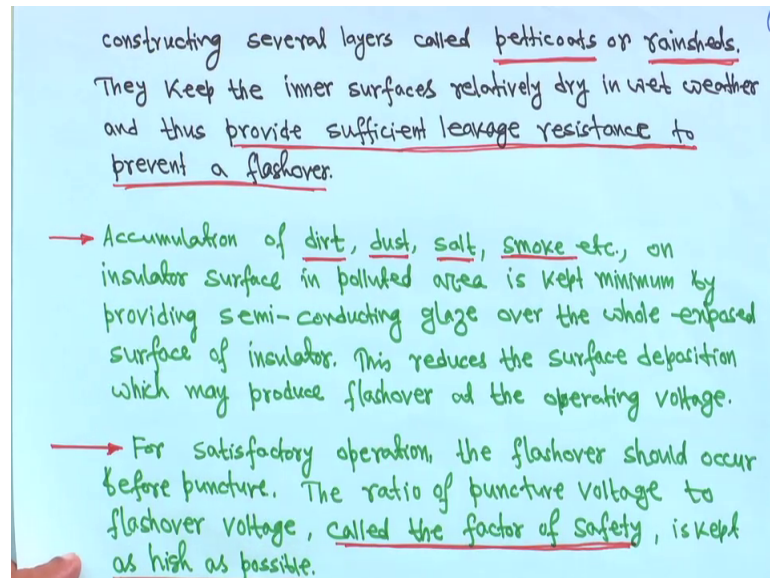 constructing several layers called petticoats or rainsheds.
They keep the inner surfaces relatively dry in wet weather
and thus provide sufficient leakage resistance to
prevent a flashover.
→ Accumulation of dirt, dust, salt, smoke etc., on
insulator surface in polluted area is kept minimum by
providing semi-conducting glaze over the whole exposed
surface of insulator. This reduces the surface deposition
which may produce flashover at the operating voltage.
→ For satisfactory operation, the flashover should occur
before puncture. The ratio of puncture voltage to
flashover voltage, called the factor of safety, is kept
as high as possible.